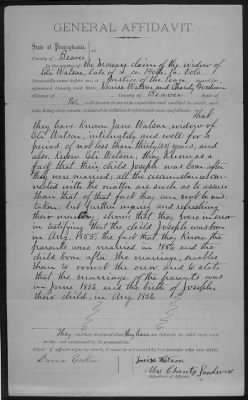 GENERAL AFFIDAVIT.
State of Pennsylvania,
County of Beaver
In the matter of the Increase claim of the widow of
Eli Watson, late of
Personally came before me, a Justice of the Peace
aforesaid County and State, Louise Watson and
of Beaver
well known to me to be reputable and entitled to credit, and
who, being duly sworn, declared in relation to aforesaid case as follows: That
they have known Jane Watson, widow of
Eli Watson, intimately and well for a
period of not less than thirty years, and
also, knew Eli Watson, they know as a
fact that their child Joseph was born after
they were married; all the circumstances con-
nected with the matter are such as to assure
them that of that fact they can not be mis-
taken; but further inquiry and refreshing
their memory, shows that they were in error
in testifying that the child Joseph was born
in Aug. 1855; the fact that they know the
parents were married in 1856 and the
child born after the marriage, enables
them to correct the error and to state
that the marriage of the parents was
in June 1856 and the birth of Joseph,
their child, in Aug. 1856.
They further declared that they have no interest in said case and
are not concerned in its prosecution.
Louise Watson
Mrs Charity